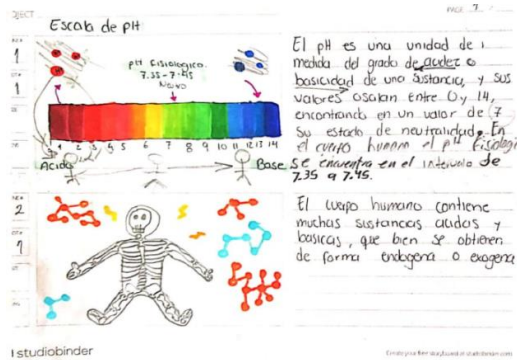 PAGE 7
Escala de pH
1
1
pH fisiologico
7.35 - 7.45
1 2 3 4 5 6 7 8 9 10 11 12 13 14
Acido
Base
El pH es una unidad de
medida del grado de acidez o
basicidad de una sustancia, y sus
valores oscilan entre 0 y 14,
encontrando en un valor de 7
su estado de neutralidad. En
el cuerpo humano el pH fisiologi
se encuentra en el intervalo de
7.35 a 7.45.
2
1
El cuerpo humano contiene
muchas sustancias acidas y
basicas, que bien se obtienen
de forma endogena o exogena
studiobinder